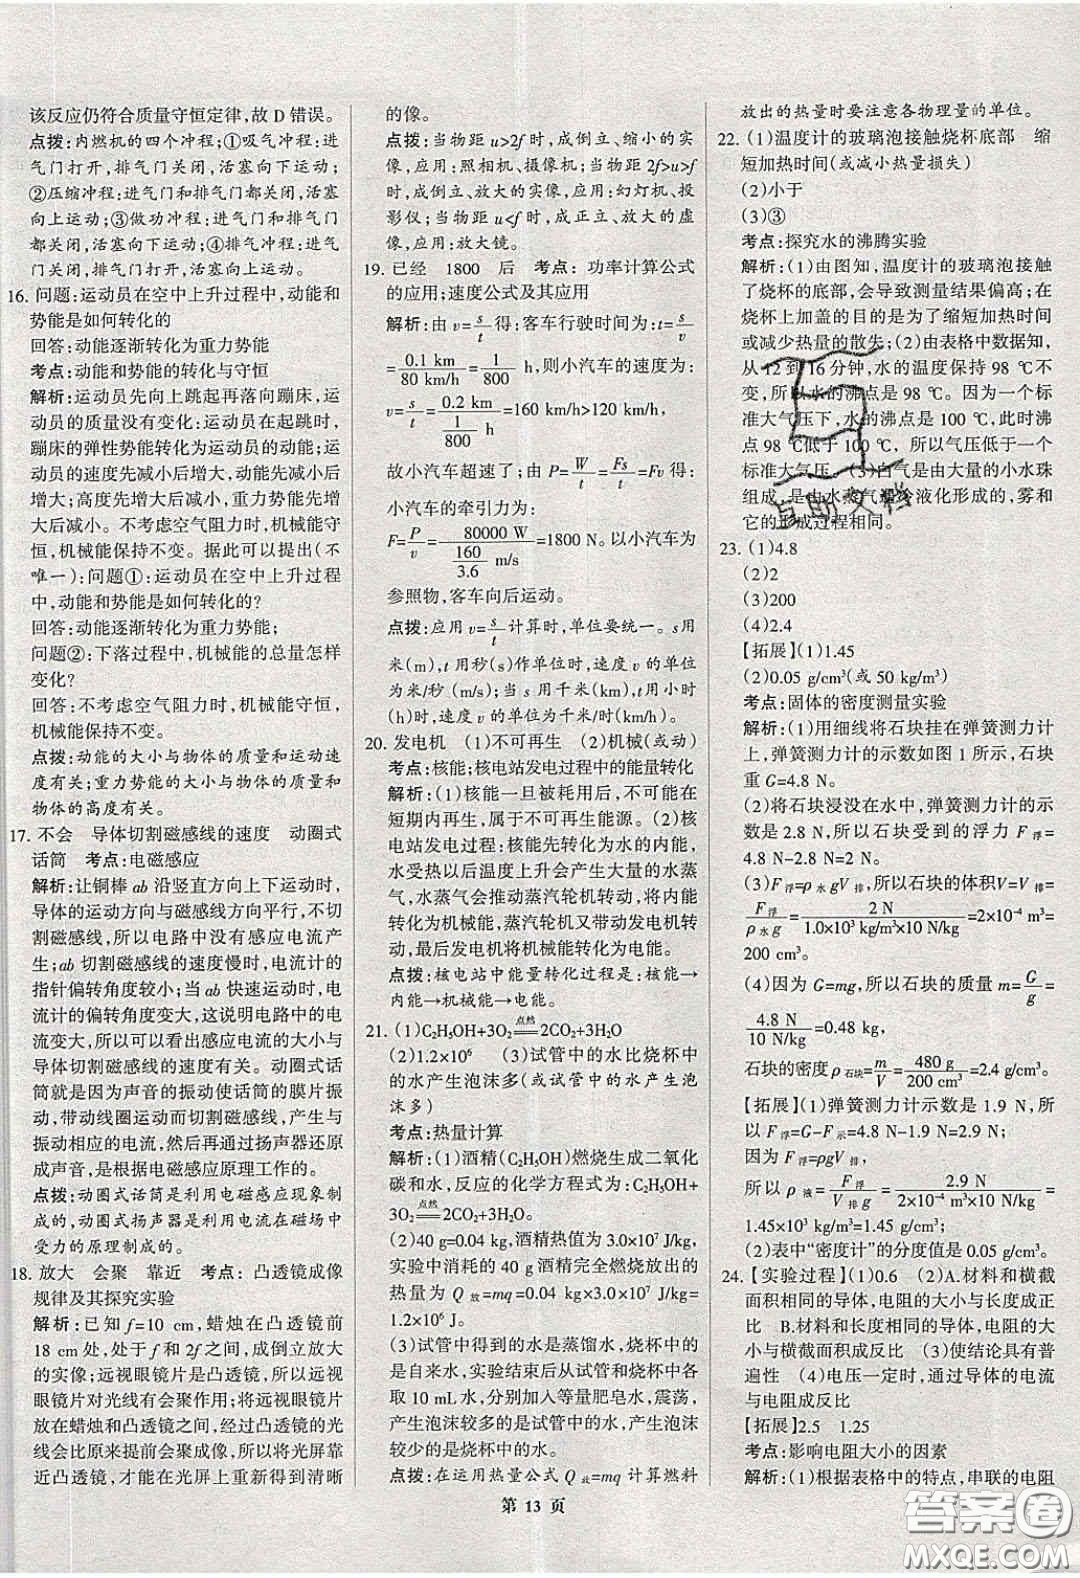 该反应仍符合质量守恒定律，故 D 错误。
点拨：内燃机的四个冲程：①吸气冲程：进
气门打开，排气门关闭，活塞向下运动；
②压缩冲程：进气门和排气门都关闭，活塞
向上运动；③做功冲程：进气门和排气门
都关闭，活塞向下运动；④排气冲程：进气
门关闭，排气门打开，活塞向上运动。
16. 问题：运动员在空中上升过程中，动能和
势能是如何转化的
回答：动能逐渐转化为重力势能
考点：动能和势能的转化与守恒
解析：运动员先向上跳起再落向蹦床，运
动员的质量没有变化；运动员在起跳时，
蹦床的弹性势能转化为运动员的动能；运
动员的速度先减小后增大，动能先减小后
增大；高度先增大后减小，重力势能先增大
后减小。不考虑空气阻力时，机械能守
恒，机械能保持不变。可以提出(不
唯一)：问题①：运动员在空中上升过程
中，动能和势能是如何转化的?
回答：动能逐渐转化为重力势能；
问题②：下落过程中，机械能的总量怎样
变化?
回答：不考虑空气阻力时，机械能守恒，
机械能保持不变。
点拨：动能的大小与物体的质量和运动速
度有关；重力势能的大小与物体的质量和
物体的高度有关。
17. 不会　导体切割磁感线的速度　动圈式
话筒　考点：电磁感应
解析：让铜棒 ab 沿竖直方向上下运动时，
导体的运动方向与磁感线方向平行，不切
割磁感线，所以电路中没有感应电流产
生；ab 切割磁感线的速度慢时，电流计的
指针偏转角度较小；当 ab 快速运动时，电
流计的偏转角度变大，这说明电路中的电
流变大，所以可以看出感应电流的大小与
导体切割磁感线的速度有关。动圈式话
筒就是因为声音的振动使话筒的膜片振
动，带动线圈运动而切割磁感线，产生与
振动相应的电流，然后再通过扬声器还原
成声音，是根据电磁感应原理工作的。
点拨：动圈式话筒是利用电磁感应现象制
成的，动圈式扬声器是利用电流在磁场中
受力的原理制成的。
18. 放大　会聚　靠近　考点：凸透镜成像
规律及其探究实验
解析：已知 f=10 cm，蜡烛在凸透镜前
18 cm 处，处于 f 和 2f 之间，成倒立放大
的实像；远视眼镜片是凸透镜，所以远视
眼镜片对光线有会聚作用；将远视眼镜片
放在蜡烛和凸透镜之间，经过凸透镜的光
线会比原来提前会聚成像，所以将光屏靠
近凸透镜，才能在光屏上重新得到清晰
的像。
点拨：当物距 u>2f 时，成倒立、缩小的实
像，应用：照相机、摄像机；当物距 2f>u>f
时，成倒立、放大的实像，应用：幻灯机、投
影仪；当物距 u<f 时，成正立、放大的虚
像，应用：放大镜。
19. 已经　1800　后　考点：功率计算公式
的应用；速度公式及其应用
解析：由 v=s/t 得：客车行驶时间为：t=s/v
=0.1 km/80 km/h=1/800 h，则小汽车的速度：
v=s/t=0.2 km/(1/800 h)=160 km/h>120 km/h，
故小汽车超速了；由 P=W/t=Fs/t=Fv 得：
小汽车的牵引力为：
F=P/v=80000 W/(160/3.6 m/s)=1800 N。以小汽车为
参照物，客车向后运动。
点拨：应用 v=s/t 计算时，单位要统一。s用
米(m)，t 用秒(s)作单位时，速度 v 的单位
为米/秒(m/s)；当 s 用千米(km)，t 用小时
(h)时，速度 v 的单位为千米/时(km/h)。
20. 发电机　(1)不可再生　(2)机械(或动)
考点：核能；核电站发电过程中的能量转化
解析：(1)核能一旦被消耗，不可能在
短期内再生，属于不可再生能源。(2)核
电站发电过程：核能转化为水的内能，
水受热以后温度上升会产生大量的水蒸
气，水蒸气会推动蒸汽轮机转动，将内能
转化为机械能。蒸汽轮机又带动发电机转
动，最后发电机将机械能转化为电能。
点拨：核电站中能量转化过程是：核能→
内能→机械能→电能。
21. (1)C₂H₅OH+3O₂ 点燃══ 2CO₂+3H₂O
(2)1.2×10⁶　(3)试管中的水比烧杯中
的水产生泡沫多(或试管中的水产生泡
沫多)
考点：热量计算
解析：(1)酒精(C₂H₅OH)燃烧生成二氧化
碳和水，反应的化学方程式为：C₂H₅OH+
3O₂ 点燃══ 2CO₂+3H₂O。
(2)40 g=0.04 kg，酒精热值为 3.0×10⁷ J/kg，
实验中消耗的 40 g 酒精完全燃烧放出的
热量为 Q放=mq=0.04 kg×3.0×10⁷ J/kg=
1.2×10⁶ J。
(3)试管中得到的水是蒸馏水，烧杯中的
是自来水，实验结束后从试管和烧杯中各
取 10 mL 水，分别加入等量肥皂水，震荡，
产生泡沫较多的是试管中的水，产生泡沫
较少的是烧杯中的水。
点拨：在运用热量公式 Q放=mq 计算燃料
放出的热量时要注意各物理量的单位。
22. (1)温度计的玻璃泡接触烧杯底部　缩
短加热时间(或减小热量损失)
(2)小于
(3)③
考点：探究水的沸腾实验
解析：(1)由图知，温度计的玻璃泡接触
了烧杯的底部，会导致测量结果偏高；在
烧杯上加盖的目的是为了缩短加热时间
或减少热量的散失；(2)由表格中数据知，
从 12 到 16 分钟，水的温度保持 98 ℃不
变，所以水的沸点是 98 ℃。因为一个标
准大气压下，水的沸点是 100 ℃，此时沸
点 98 ℃低于 100 ℃，所以气压低于一个
标准大气压。(3)白气是由大量的小水珠
组成，是由水蒸气遇冷液化形成的，雾和
它的形成过程相同。
23. (1)4.8
(2)2
(3)200
(4)2.4
【拓展】(1)1.45
(2)0.05 g/cm³(或 50 kg/m³)
考点：固体的密度测量实验
解析：(1)用细线将石块挂在弹簧测力计
上，弹簧测力计的示数如图 1 所示，石块
重 G=4.8 N。
(2)将石块浸没在水中，弹簧测力计的示
数是 2.8 N，所以石块受到的浮力 F浮=
4.8 N-2.8 N=2 N。
(3)F浮=ρ水gV排，所以石块的体积V=V排=
F浮/ρ水g=2 N/(1.0×10³ kg/m³×10 N/kg)=2×10⁻⁴ m³=
200 cm³。
(4)因为 G=mg，所以石块的质量 m=G/g=
4.8 N/10 N/kg=0.48 kg，
石块的密度 ρ石块=m/V=480 g/200 cm³=2.4 g/cm³。
【拓展】(1)弹簧测力计示数是 1.9 N，所
以 F浮=G-F示=4.8 N-1.9 N=2.9 N；
因为 F浮=ρgV排，
所以 ρ液=F浮/V排g=2.9 N/(2×10⁻⁴ m³×10 N/kg)=
1.45×10³ kg/m³=1.45 g/cm³；
(2)表中“密度计”的分度值是 0.05 g/cm³。
24. 【实验过程】(1)0.6　(2)A.材料和横截
面积相同的导体，电阻的大小与长度成正
比　B.材料和长度相同的导体，电阻的大
小与横截面积成反比　(3)使结论具有普
遍性　(4)电压一定时，通过导体的电流
与电阻成反比
【拓展】2.5　1.25
考点：影响电阻大小的因素
解析：(1)根据表格中的特点，串联的电阻
第 13 页
互助文档
答案圈
MXQE.COM